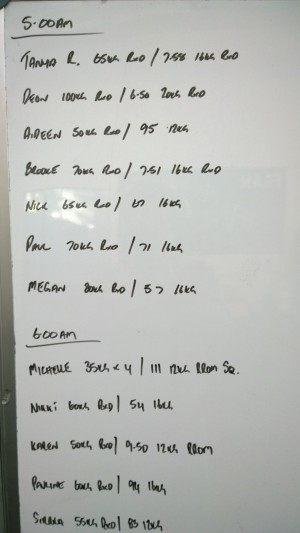 5-00AM
TANYA R. 65KG RXD / 7.58 16KG RXD
DEON 100KG RXD / 6.50 20KG RXD
AIREEN 50KG RXD / 95 12KG
BROOKE 70KG RXD / 7.51 16KG RXD
NICK 65KG RXD / 67 16KG
PAUL 70KG RXD / 71 16KG
MEGAN 80KG RXD / 57 16KG
6:00AM
MICHELLE 35KG x 4 / 111 12KG RROM SQ.
NIKKI 60KG RXD / 54 16KG
KAREN 50KG RXD / 9.50 12KG RROM
PAULINE 60KG RXD / 94 16KG
55KG RXD / 83 12KG